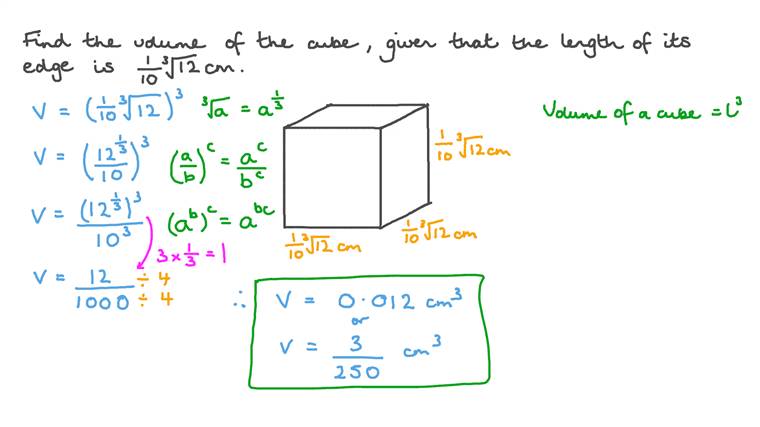 Find the volume of the cube, given that the length of its
edge is 1/10 ∛12 cm.
V = (1/10 ∛12)³
∛a = a^(1/3)
Volume of a cube = L³
V = (12^(1/3)/10)³
(a/b)^c = a^c/b^c
1/10 ∛12 cm
V = (12^(1/3))³/10³
(a^b)^c = a^bc
1/10 ∛12 cm
1/10 ∛12 cm
3 × 1/3 = 1
V = 12/1000 ÷ 4 ÷ 4
∴ V = 0.012 cm³
or
V = 3/250 cm³